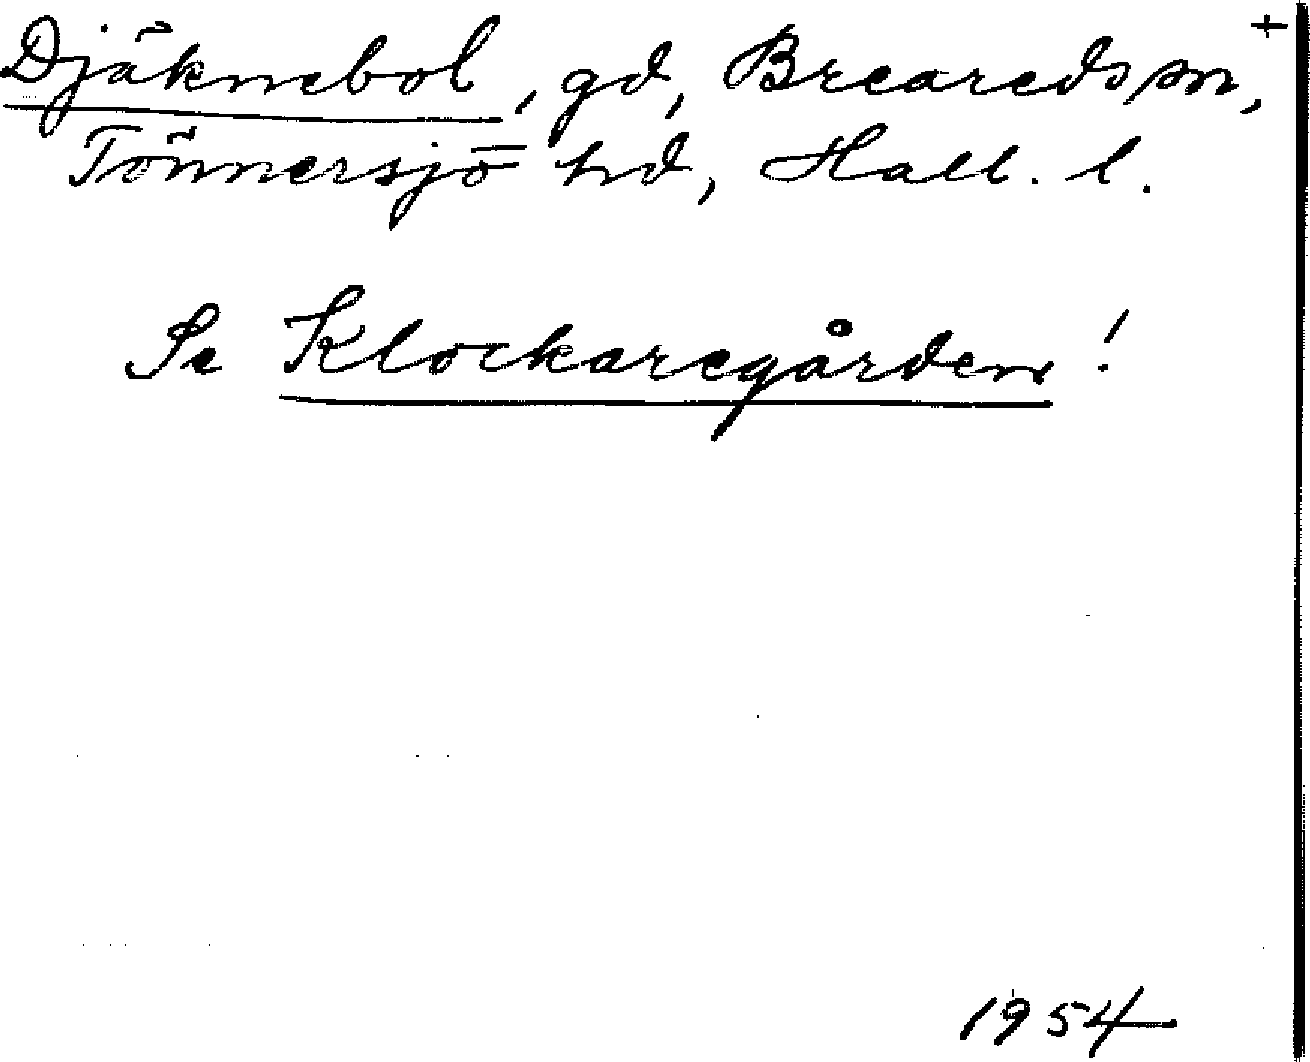 Djäknebol, gd, Breareds sn, +
Tönnersjö hd, Hall. l.
Se Klockaregården!
1954